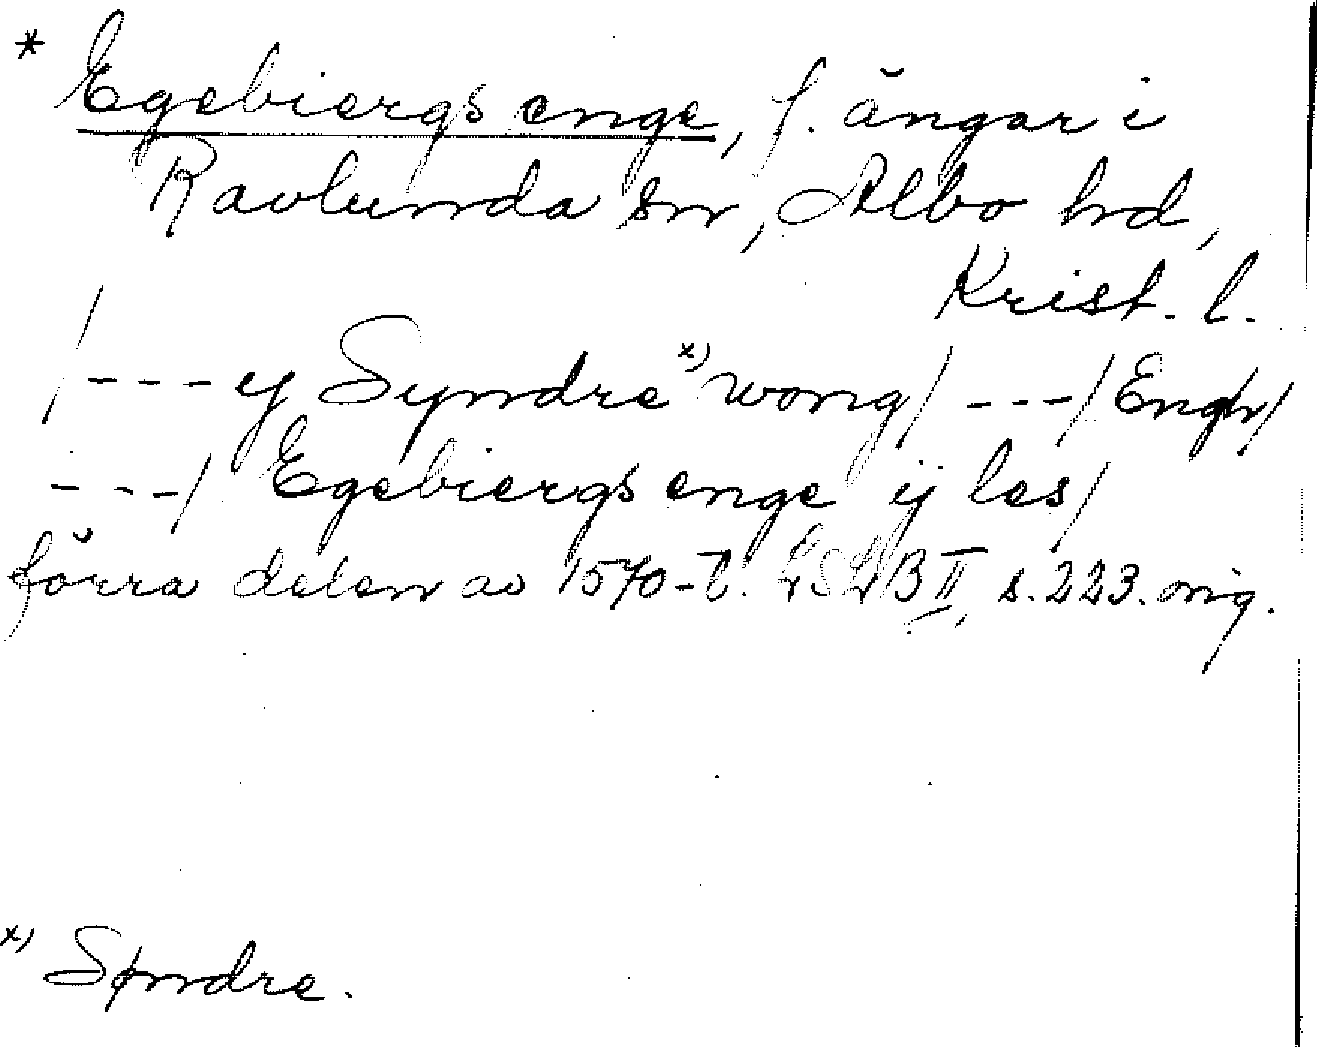 * Egebiergs enge, f. ängar i
Ravlunda sn, Albo hd,
Krist. l.
/---y Syndre x) wong/ ---/Engh/
---/ Egebiergs enge ij les/
förra delen av 1570-t. LSLB II, s. 223. orig.
x) Søndre.